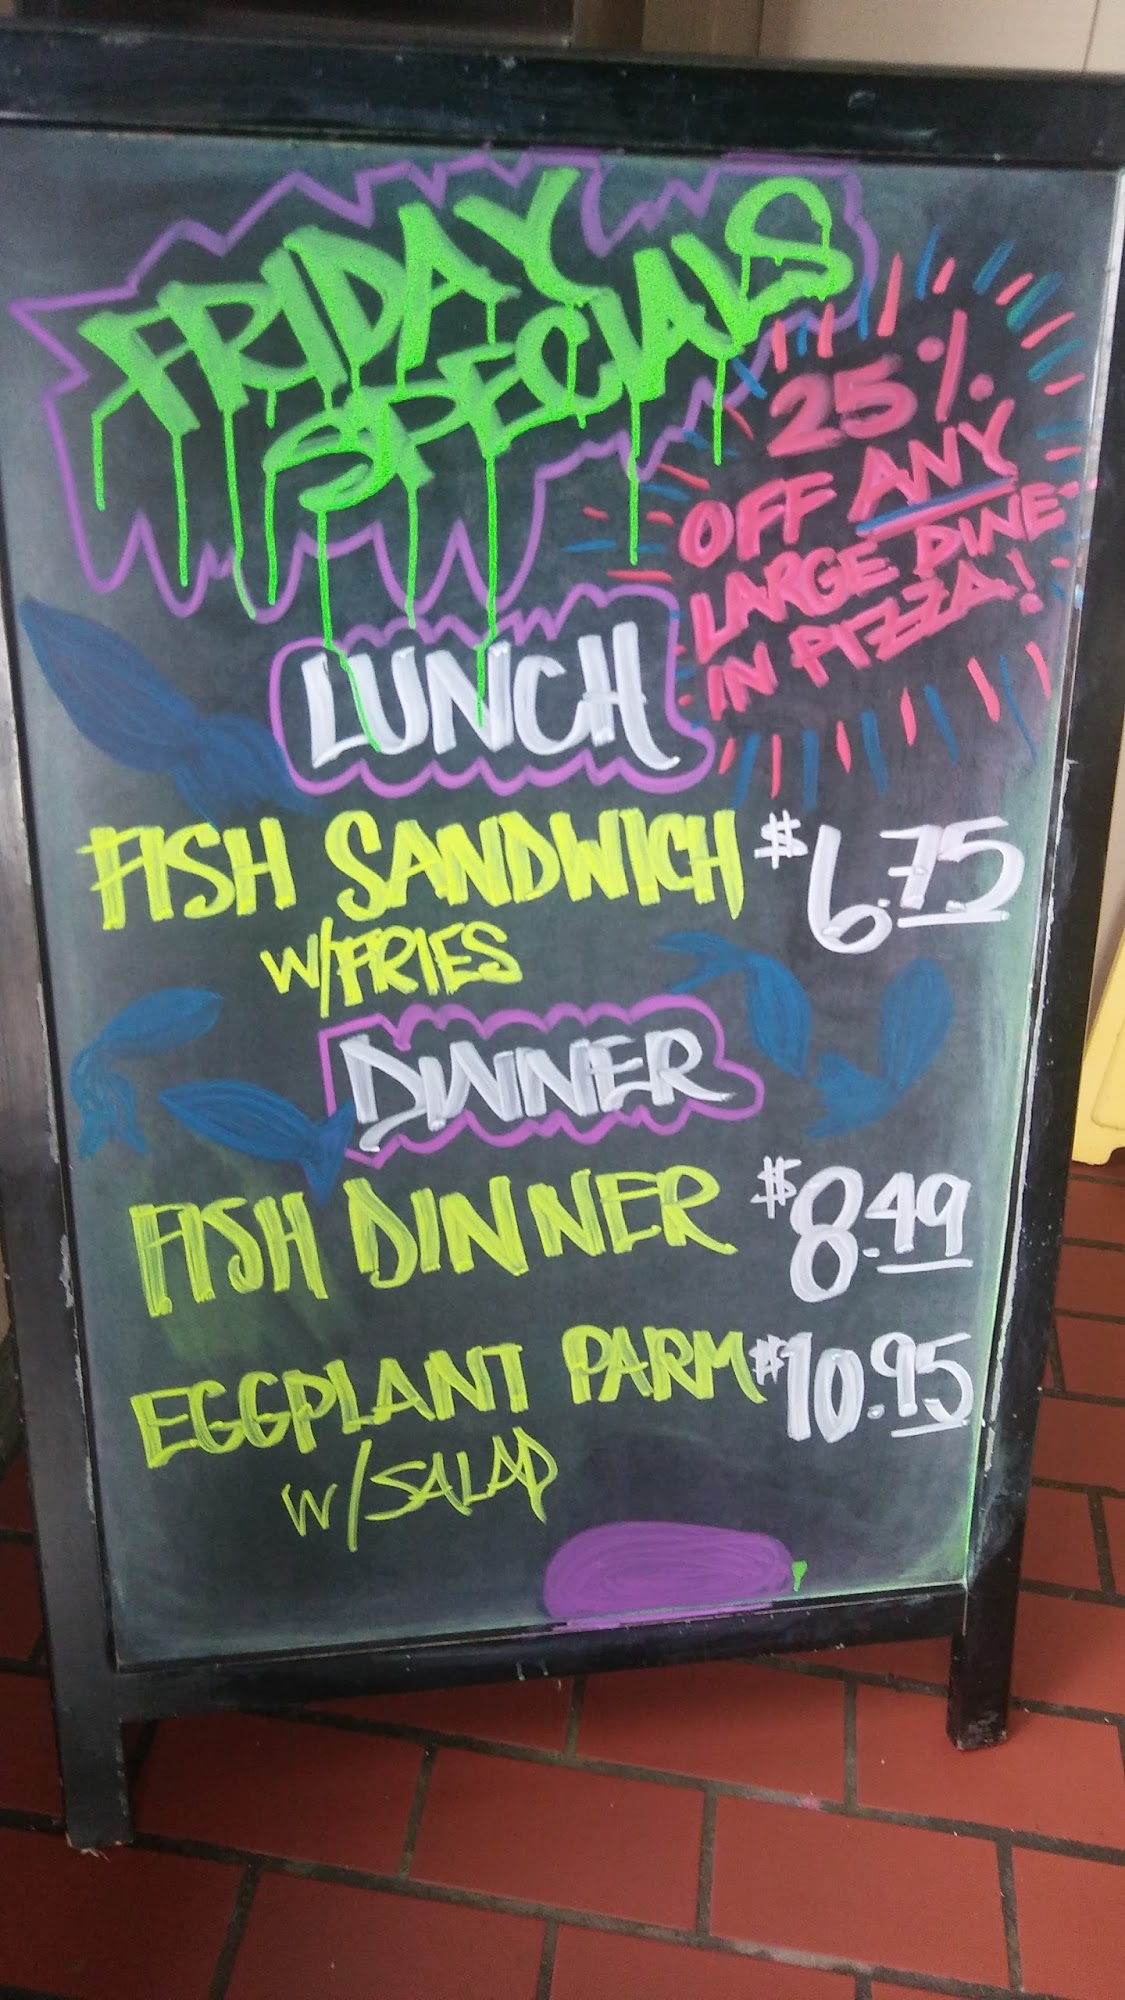 FRIDAY
SPECIALS
25%
OFF ANY
LARGE DINE
IN PIZZA!
LUNCH
FISH SANDWICH $6.75
W/FRIES
DINNER
FISH DINNER $8.49
EGGPLANT PARM $10.95
W/SALAD